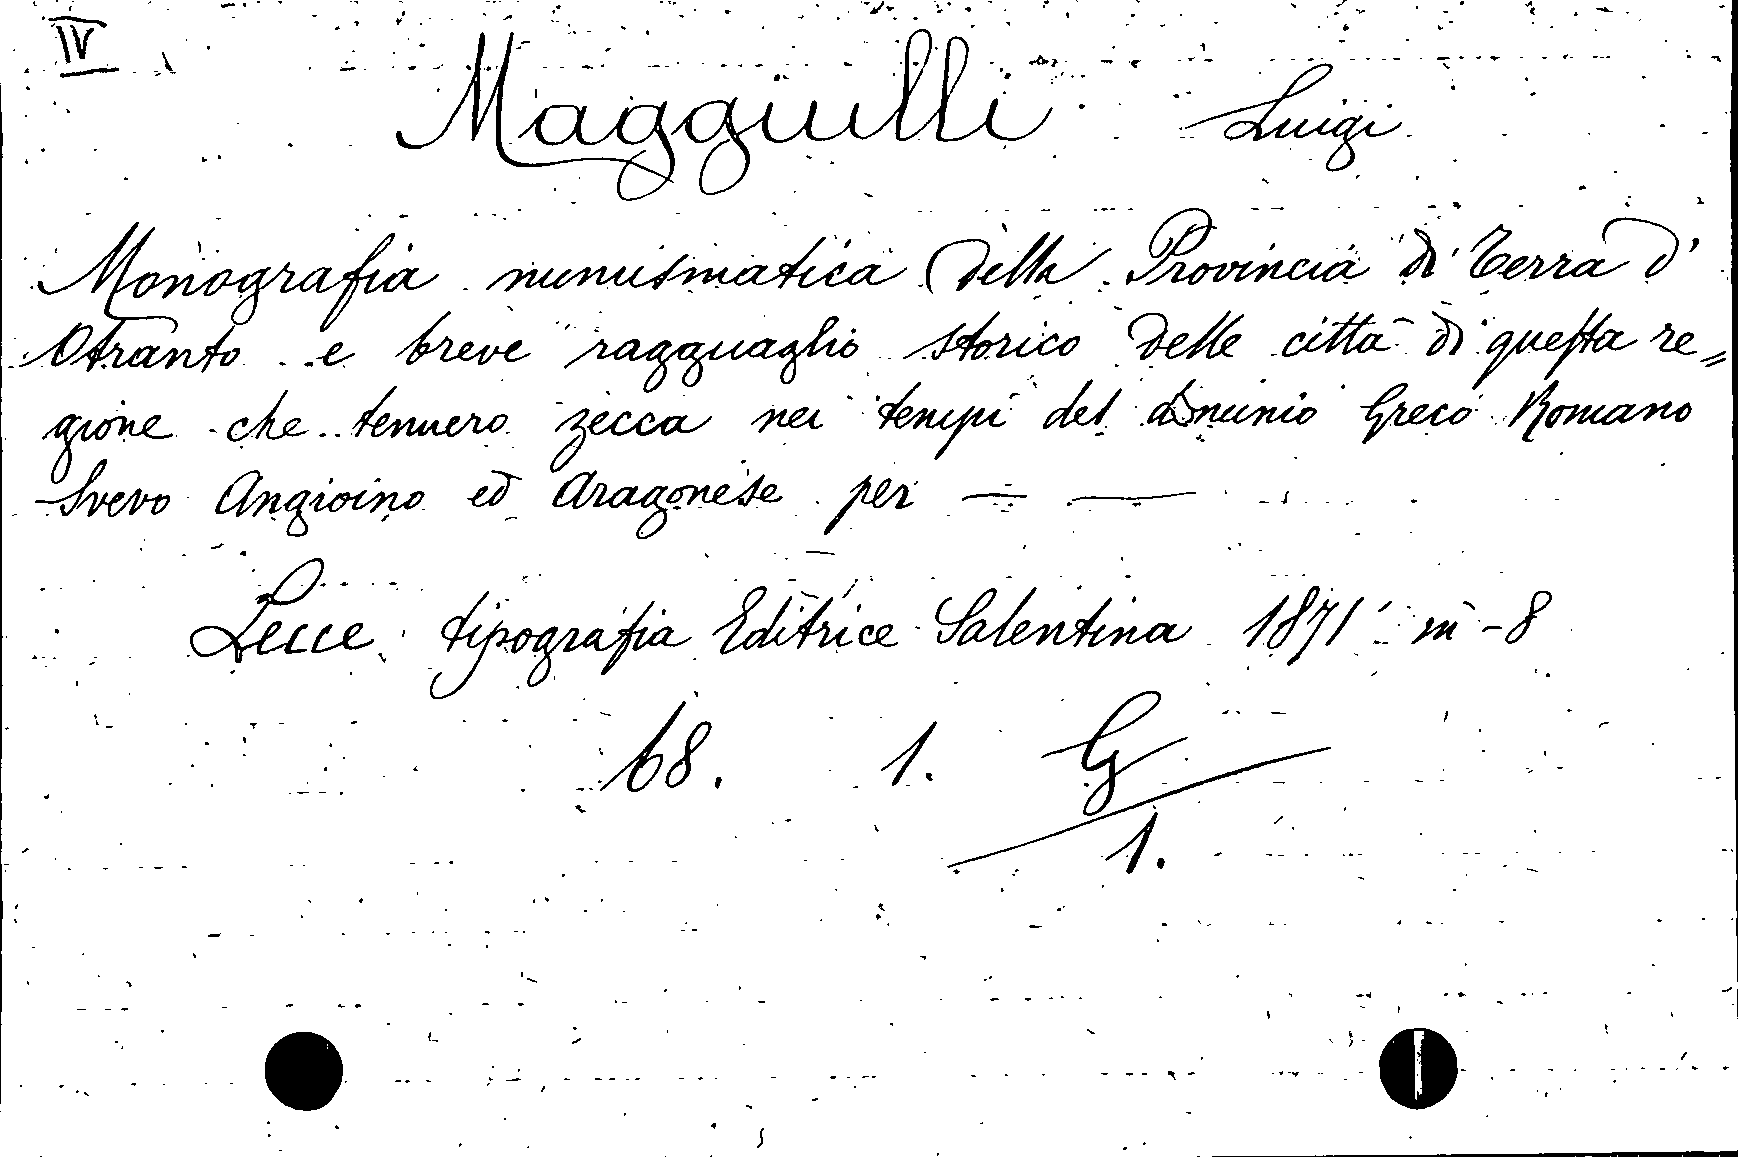 IV
Maggiulli Luigi
Monografia numismatica della Provincia di Terra d'
Otranto e breve ragguaglio storico delle città di questa re=
gione che tennero zecca nei tempi del dominio Greco Romano
Svevo Angioino ed Aragonese per — —
Lecce tipografia Editrice Salentina 1871 in-8
68. 1. G
1.